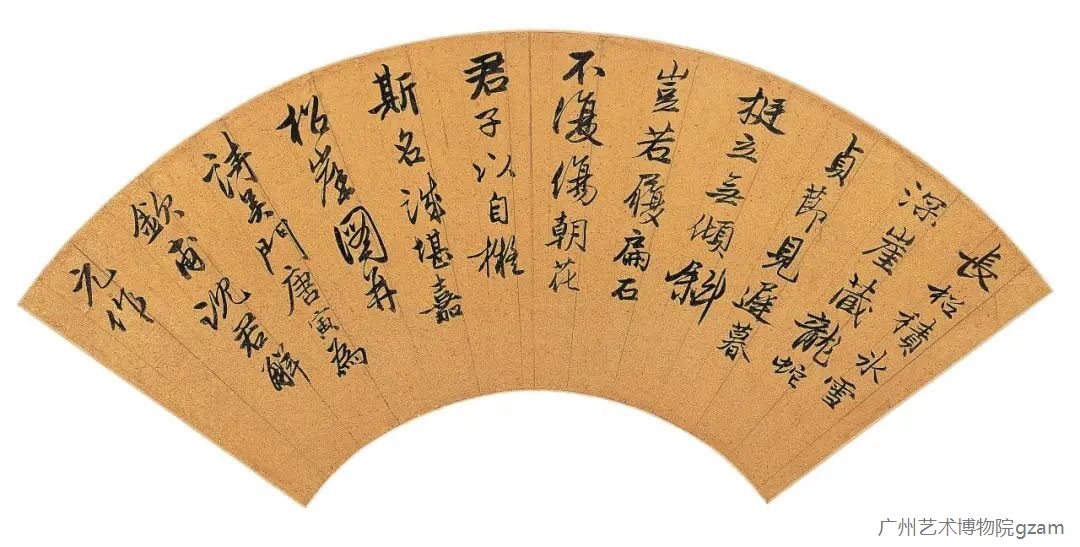 長松積氷雪
深崖藏龍蛇
貞節見遲暮
挺立無傾斜
豈若履扁石
不復傷朝花
君子以自擬
斯名誠堪嘉
松崖圖并
詩吳門唐寅為
欽甫沈君解
元作
广州艺术博物院gzam